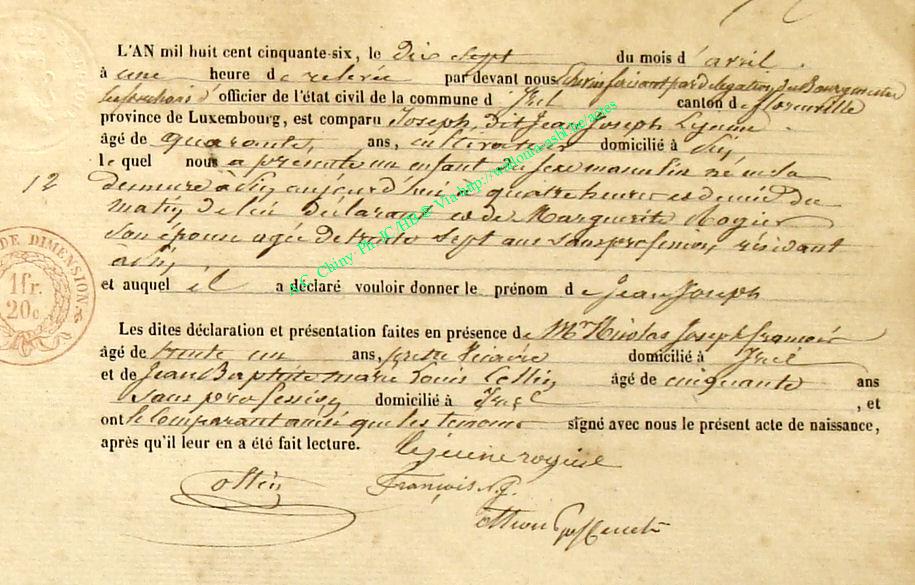 L'AN mil huit cent cinquante-six, le Dix sept du mois d'avril.
à une heure de relevée par devant nous Echevin faisant par délégation du Bourgmestre
les fonctions d'officier de l'état civil de la commune d'Izel canton de florenville
province de Luxembourg, est comparu Joseph, dit Jean Joseph Lejeune
âgé de quarante, ans, cultivateur domicilié à
le quel nous a présenté un enfant du sexe masculin né en sa
12 demeure à aujourd'hui à quatre heures et demie du
matin de lui déclarant et de Marguerite Rogier
son épouse agée de trente sept ans sans profession, résidant
à
et auquel il a déclaré vouloir donner le prénom de Jean Joseph
DE DIMENSION.
1 fr.
20 c.
Les dites déclaration et présentation faites en présence de Mr Nicolas Joseph françois
âgé de trente un ans, vicaire domicilié à Izel
et de Jean Baptiste marie Louis âgé de cinquante ans
sans profession domicilié à Izel, et
ont le comparant ainsi que les temoins signé avec nous le présent acte de naissance,
après qu'il leur en a été fait lecture.
lejeune rogier
François N.J.
A.E. Chiny Ph.JC/HB © Via http://wallonia-asbl.be/actes